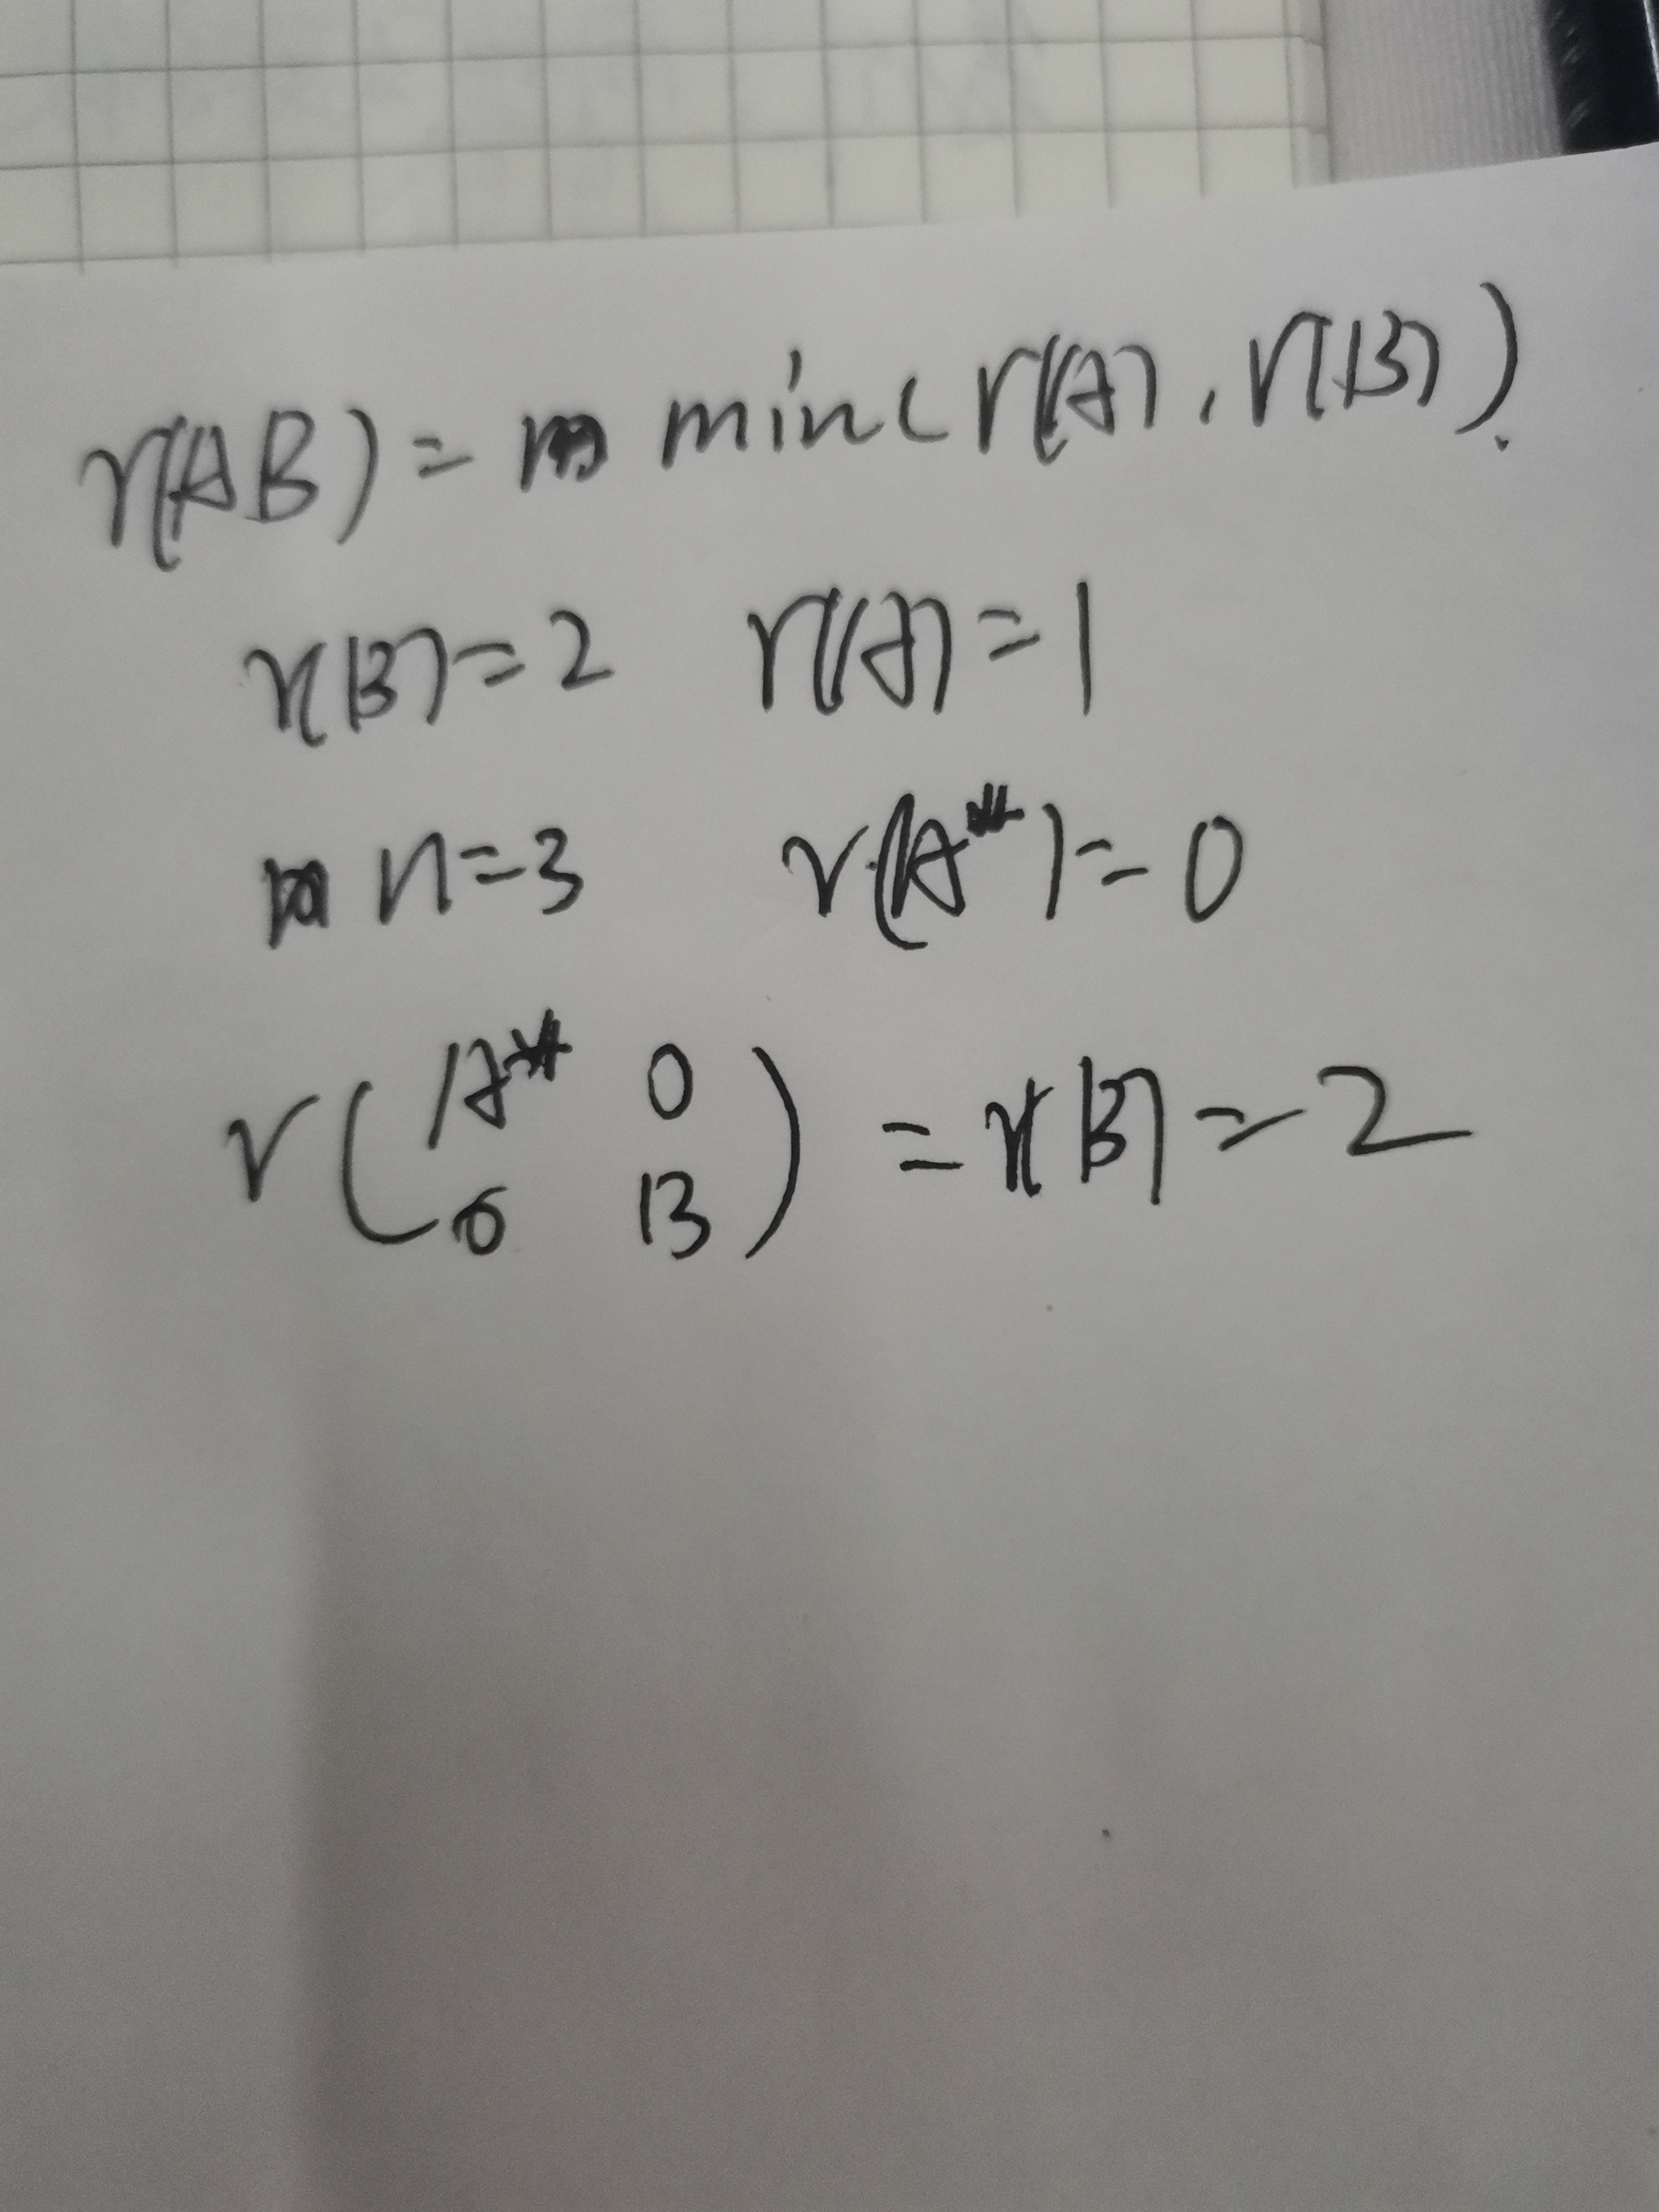 r(AB) = min(r(A), r(B))
r(B) = 2 r(A) = 1
n = 3 r(A*) = 0
r( A* 0
0 B ) = r(B) = 2